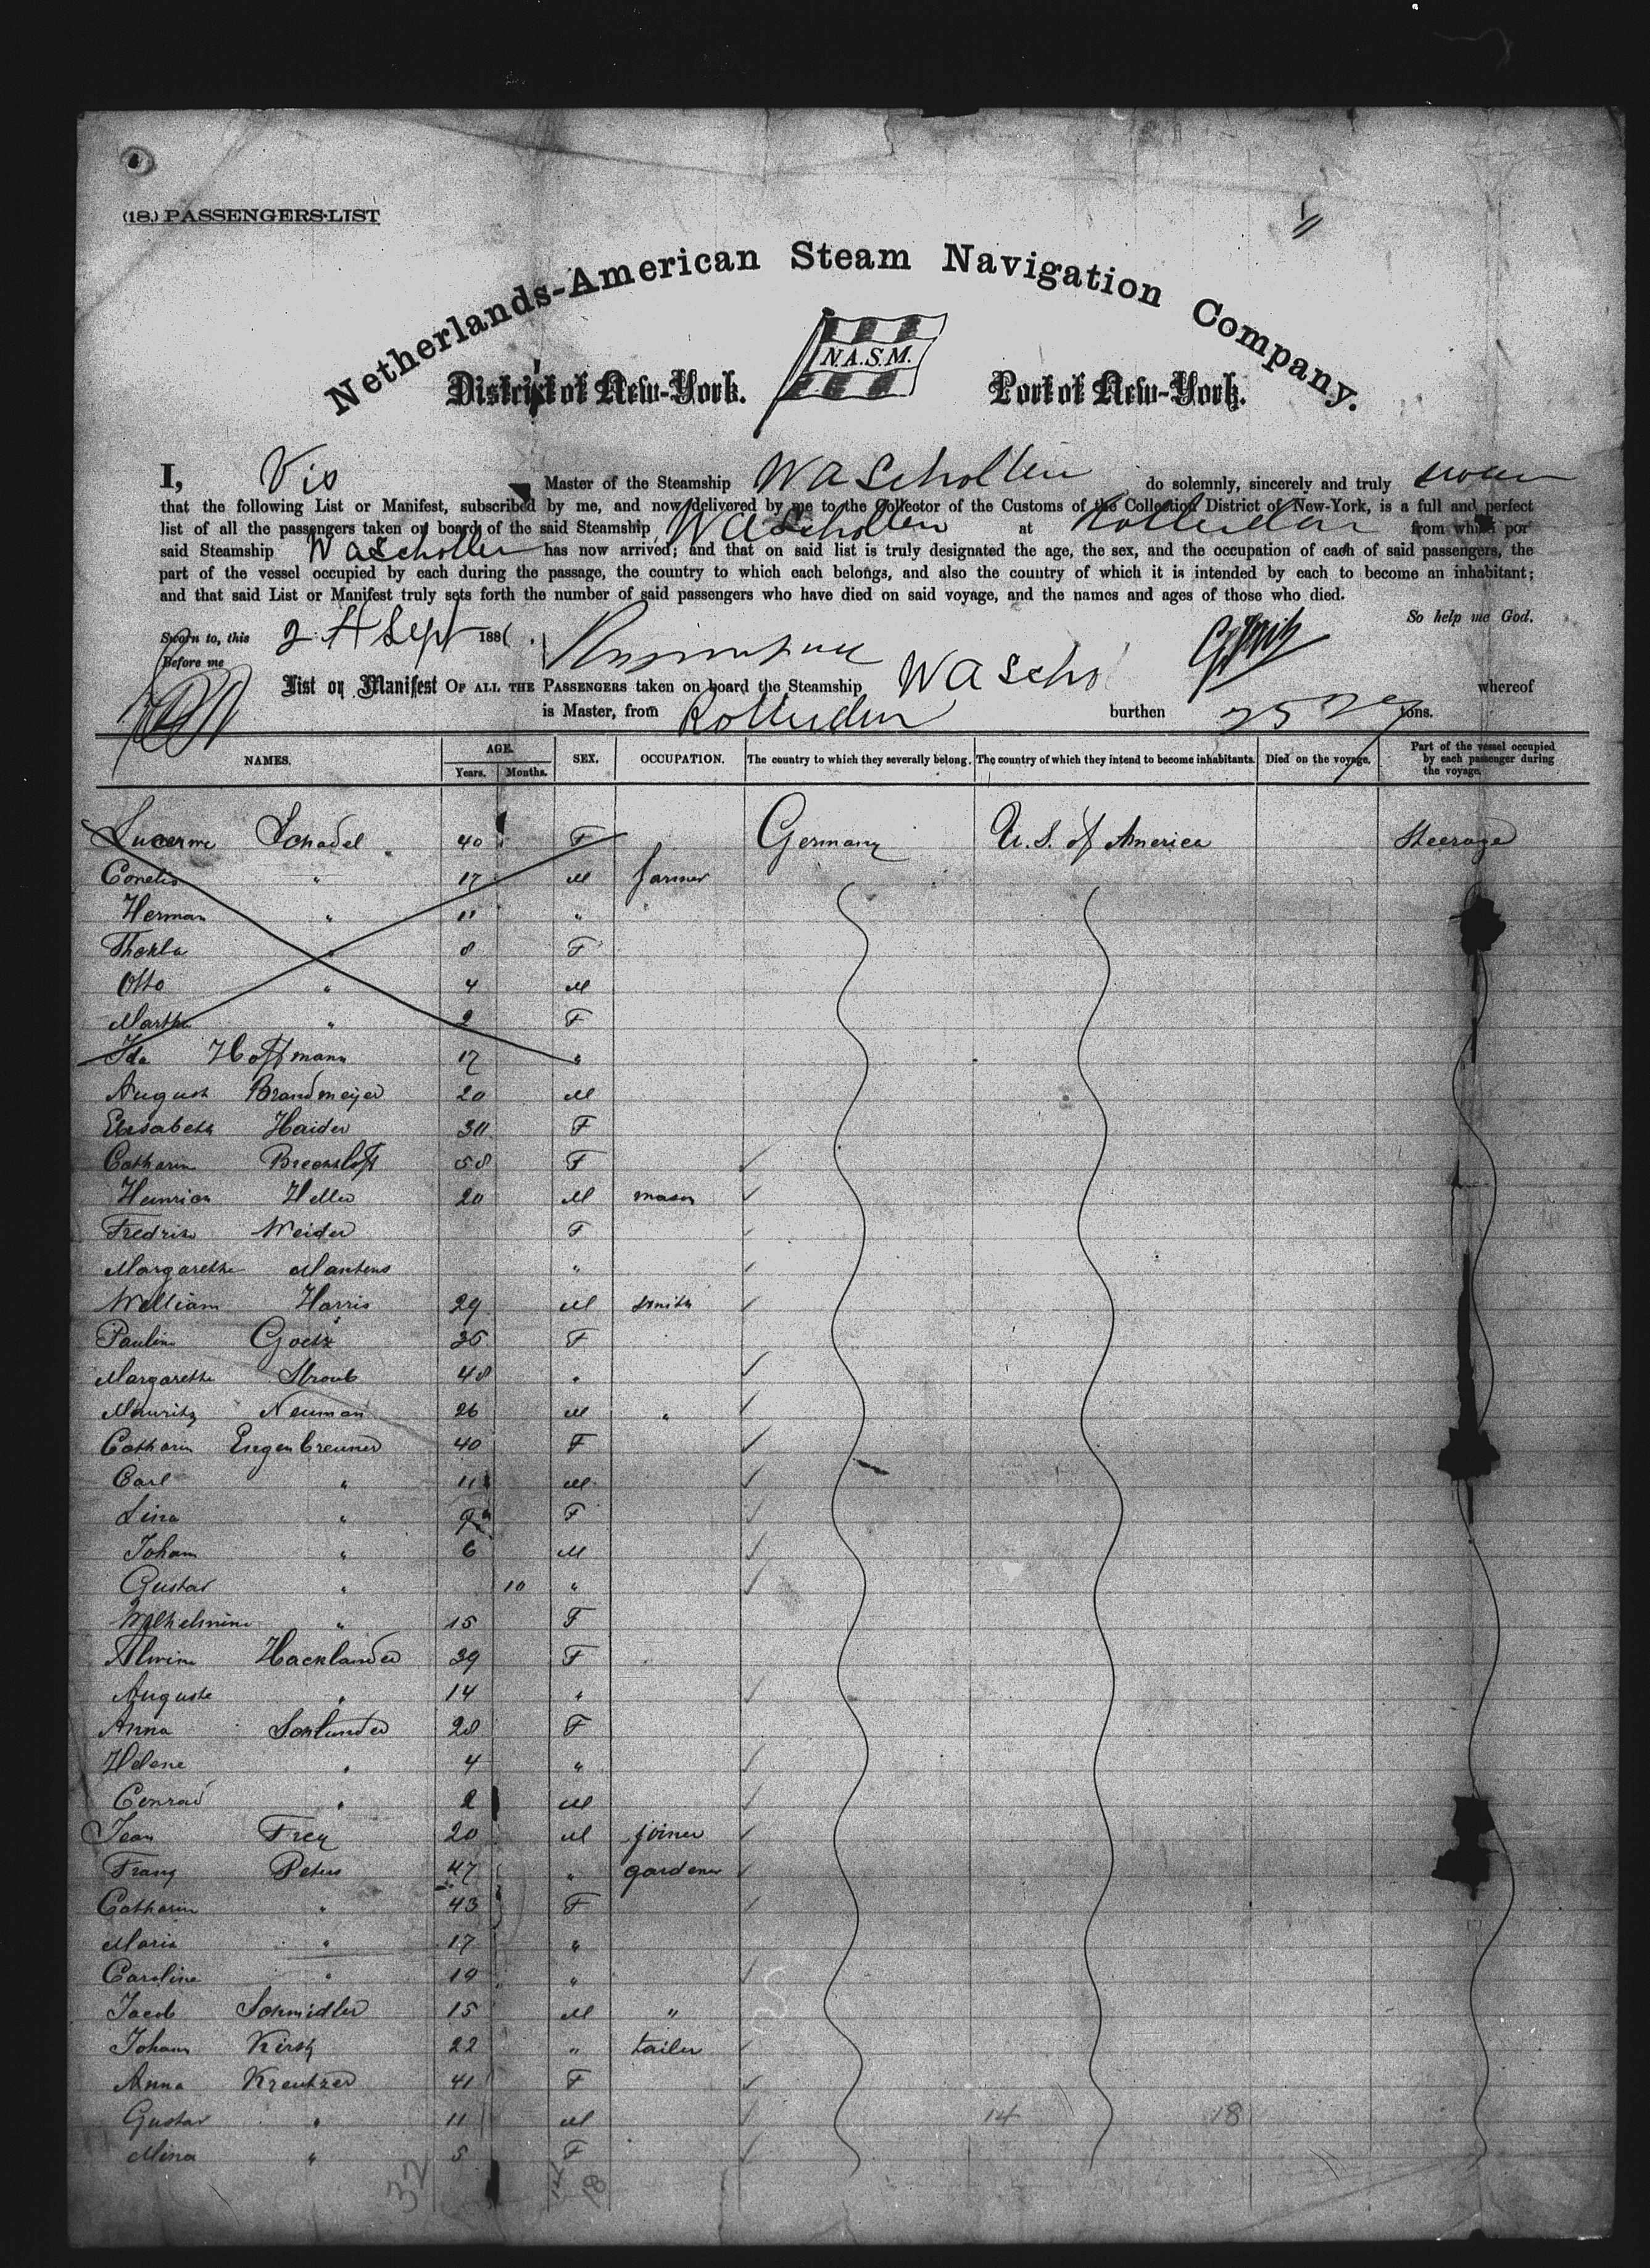 (18.) PASSENGERS-LIST
Netherlands-American Steam Navigation Company.
N.A.S.M.
District of New-York. Port of New-York.
I, Vis Master of the Steamship W A Scholten do solemnly, sincerely and truly swear
that the following List or Manifest, subscribed by me, and now delivered by me to the Collector of the Customs of the Collection District of New-York, is a full and perfect
list of all the passengers taken on board of the said Steamship W A Scholten at Rotterdam from which port
said Steamship W A Scholten has now arrived; and that on said list is truly designated the age, the sex, and the occupation of each of said passengers, the
part of the vessel occupied by each during the passage, the country to which each belongs, and also the country of which it is intended by each to become an inhabitant;
and that said List or Manifest truly sets forth the number of said passengers who have died on said voyage, and the names and ages of those who died.
So help me God.
Sworn to, this 24 Sept 1881.
Before me
List or Manifest OF ALL THE PASSENGERS taken on board the Steamship W A Scho whereof
is Master, from Rotterdam burthen 2529 tons.
NAMES. AGE. Years. Months. SEX. OCCUPATION. The country to which they severally belong. The country of which they intend to become inhabitants. Died on the voyage. Part of the vessel occupied by each passenger during the voyage.
Schadel 40 F Germany U. S. of America Steerage
Conelis " 17 M farmer
Herman " 11 "
Thekla " 8 F
Otto " 4 M
Martha " 2 F
Ida Hoffmann 17 "
August Brandmeijer 20 M
Elisabeth Haider 30 F
Catharin 58 F
Heinrich Heller 20 M mason
Fredrike Weider F
Margarethe Martens "
William Harris 29 M smith
Pauline Goetz 35 F
Margarethe Straub 48 "
Mauritz Neuman 26 M "
Catharin Engenbrenner 40 F
Carl " 11 M
Lina " 9 F
Johann " 6 M
Gustav " 10 "
Wilhelmine " 15 F
Alwine Hacklander 39 F
Auguste " 14 "
Anna Sonlunder 28 F
Helene " 4 "
Conrad " 2 M
Jean Frey 20 M joiner
Franz Peters 47 " gardener
Catharin " 43 F
Maria " 17 "
Caroline " 19 "
Jacob Schmidler 15 M "
Johann Kirsch 22 " tailer
Anna Kreutzer 41 F
Gustav " 11 M 14 18
Mina " 5 F
32 14 18